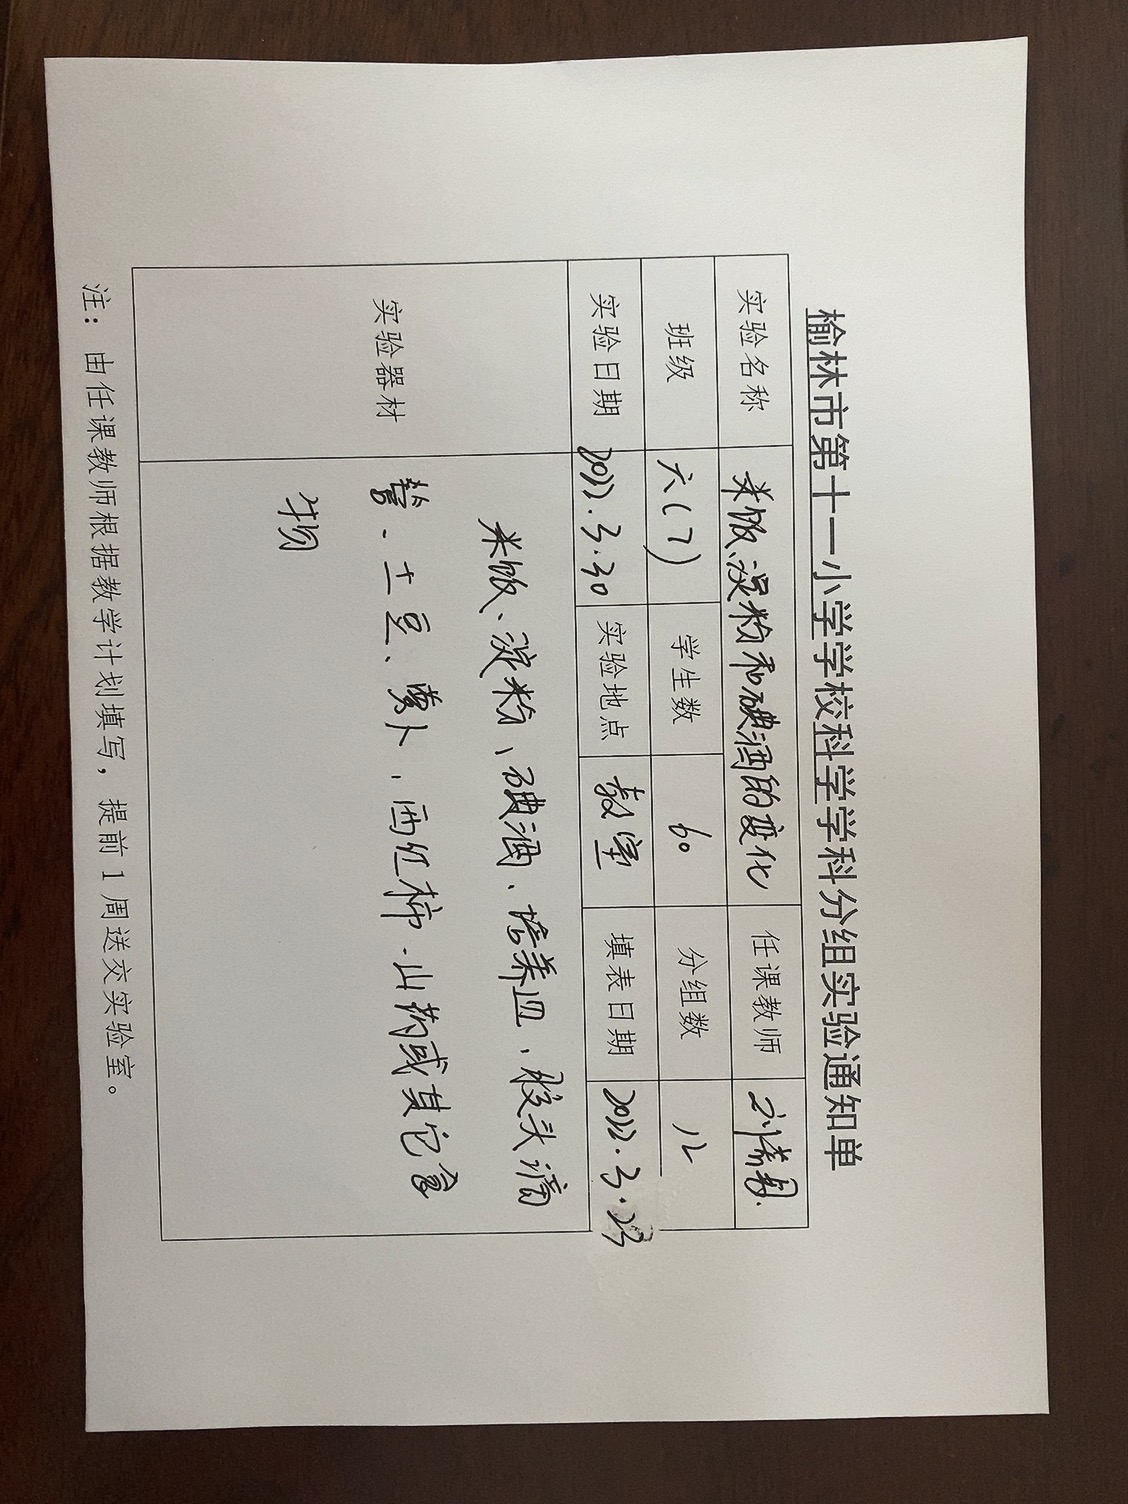 榆林市第十一小学学校科学学科分组实验通知单
实验名称 米饭、淀粉和碘酒的变化 任课教师
班级 六(7) 学生数 60 分组数 八
实验日期 2022.3.30 实验地点 教室 填表日期 2022.3.23
实验器材
米饭、淀粉、碘酒、培养皿、胶头滴
管、土豆、萝卜、西红柿、山药或其它食
物
注：由任课教师根据教学计划填写，提前1周送交实验室。